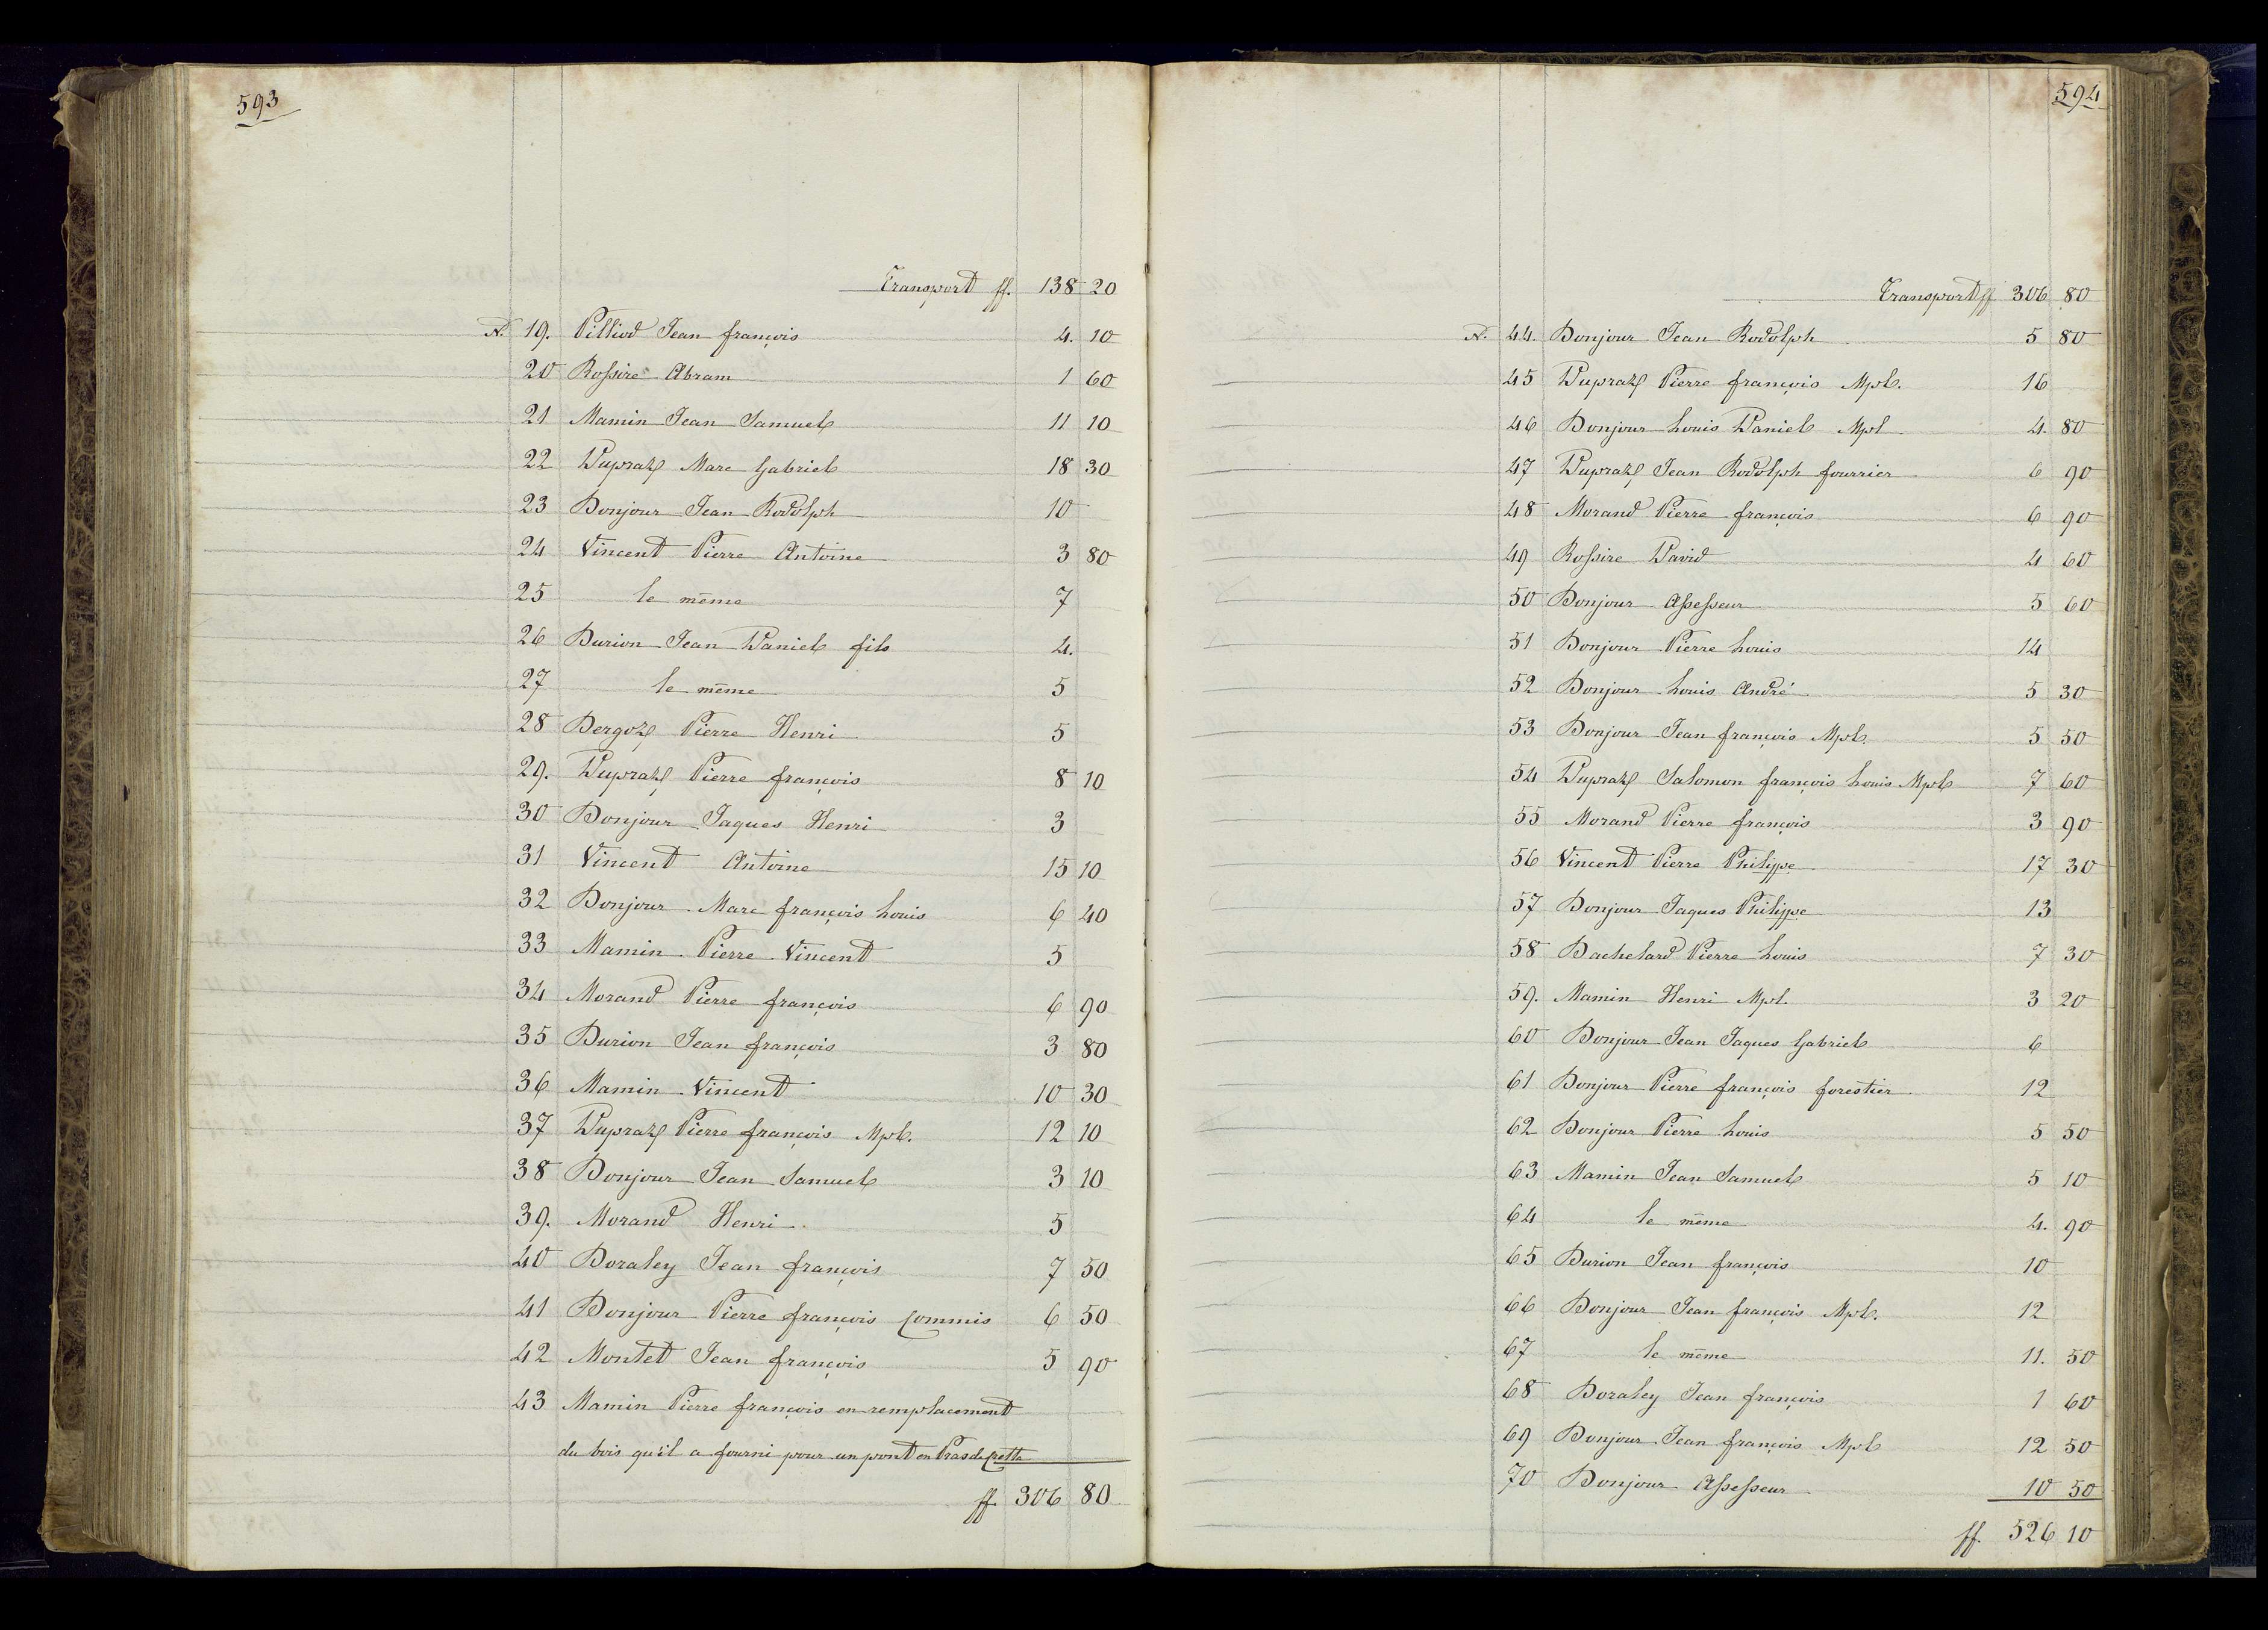 593
Transport ff. 138 20
N. 19. Pilliod Jean françois 4. 10
20 Rossire Abram 1 60
21 Mamin Jean Samuel 11 10
22 Dupraz Marc Gabriel 18 30
23 Bonjour Jean Rodolph 10
24 Vincent Pierre Antoine 3 80
25 le même 7
26 Burion Jean Daniel fils 4.
27 le même 5
28 Bergoz Pierre Henri 5
29. Dupraz Pierre françois 8 10
30 Bonjour Jaques Henri 3
31 Vincent Antoine 15 10
32 Bonjour Marc françois Louis 6 40
33 Mamin Pierre Vincent 5
34 Morand Pierre françois 6 90
35 Burion Jean françois 3 80
36 Mamin Vincent 10 30
37 Dupraz Pierre françois Mpl. 12 10
38 Bonjour Jean Samuel 3 10
39. Morand Henri 5
40 Doraley Jean françois 7 50
41 Bonjour Pierre françois Commis 6 50
42 Montet Jean françois 5 90
43 Mamin Pierre françois en remplacement
du bois qu'il a fourni pour un pont en Pras de Cretta
ff. 306 80
594
Transport ff 306 80
N. 44. Bonjour Jean Rodolph 5 80
45 Dupraz Pierre françois Mpl. 16
46 Bonjour Louis Daniel Mpl 4. 80
47 Dupraz Jean Rodolph fourrier 6 90
48 Morand Pierre françois 6 90
49 Rossire David 4 60
50 Bonjour Assesseur 5 60
51 Bonjour Pierre Louis 14
52 Bonjour Louis André 5 30
53 Bonjour Jean françois Mpl. 5 50
54 Dupraz Salomon françois Louis Mpl 7 60
55 Morand Pierre françois 3 90
56 Vincent Pierre Philippe 17 30
57 Bonjour Jaques Philippe 13
58 Bachelard Pierre Louis 7 30
59. Mamin Henri Mpl. 3 20
60 Bonjour Jean Jaques Gabriel 6
61 Bonjour Pierre françois forestier 12
62 Bonjour Pierre Louis 5 50
63 Mamin Jean Samuel 5 10
64 le même 4. 90
65 Burion Jean françois 10
66 Bonjour Jean françois Mpl. 12
67 le même 11. 50
68 Doraley Jean françois 1 60
69 Bonjour Jean françois Mpl 12 50
70 Bonjour Assesseur 10 50
ff. 526 10